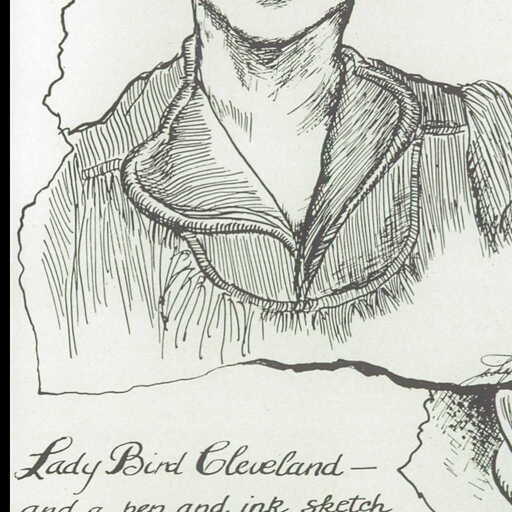 Lady Bird Cleveland —
and a pen and ink sketch